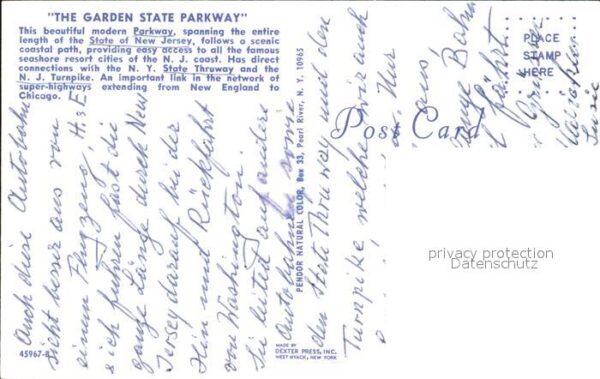 "THE GARDEN STATE PARKWAY"
This beautiful modern Parkway, spanning the entire
length of the State of New Jersey, follows a scenic
coastal path, providing easy access to all the famous
seashore resort cities of the N. J. coast. Has direct
connections with the N. Y. State Thruway and the
N. J. Turnpike. An important link in the network of
super-highways extending from New England to
Chicago.
PLACE
STAMP
HERE
Post Card
PENDOR NATURAL COLOR, Box 33, Pearl River, N. Y. 10965
Auch diese Autobahn
sieht besser aus von
einem Flugzeug!
sich führen fast die
ganze Länge durch New
Jersey darauf bei der
Hin und Rückfahrt
von Washington.
Sie leitet auf andere
Autobahnen sowie
den State Thruway und den
Turnpike, welche wir auch
Nur
aus,
Bahn
fährt.
Susie
45967-B
MADE BY
DEXTER PRESS, INC.
WEST NYACK, NEW YORK
privacy protection
Datenschutz